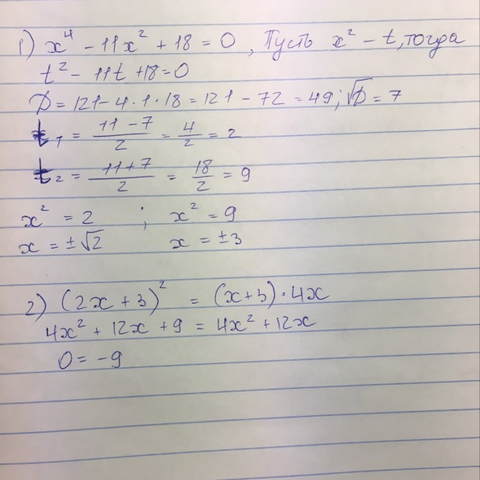 1) x⁴ - 11x² + 18 = 0, Пусть x² - t, тогда
t² - 11t + 18 = 0
D = 121 - 4·1·18 = 121 - 72 = 49; √D = 7
t₁ = (11 - 7)/2 = 4/2 = 2
t₂ = (11 + 7)/2 = 18/2 = 9
x² = 2 ; x² = 9
x = ±√2 x = ±3
2) (2x + 3)² = (x + 3)·4x
4x² + 12x + 9 = 4x² + 12x
0 = -9